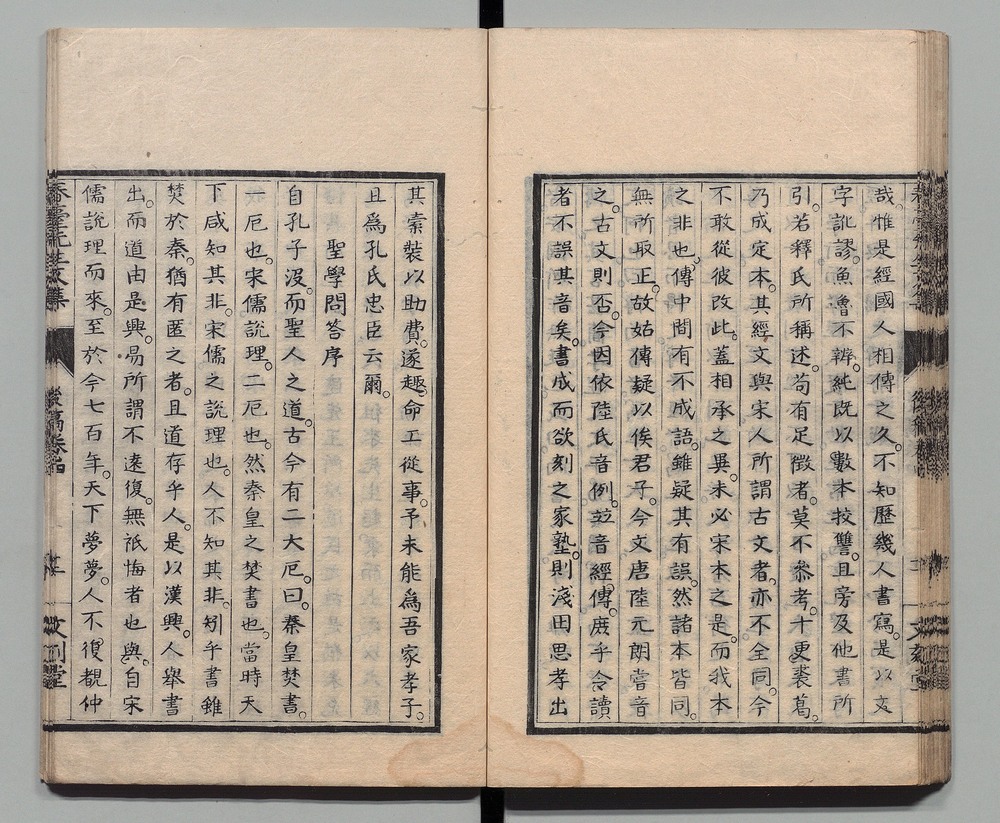 哉惟是經國人相傳之久不知歷幾人書寫是以文
字訛謬魚魯不辨純既以數本挍讐且旁及他書所
引若釋氏所稱述苟有足徵者莫不叅考十更裘葛
乃成定本其經文與宋人所謂古文者亦不全同今
不敢從彼改此蓋相承之異未必宋本之是而我本
之非也傳中間有不成語雖疑其有誤然諸本皆同
無所取正故姑傳疑以俟君子今文唐陸元朗嘗音
之古文則否今因依陸氏音例竝音經傳庶乎令讀
者不誤其音矣書成而欲刻之家塾則淺田思孝出
其索裝以助費遂趣命工從事予未能爲吾家孝子
且爲孔氏忠臣云爾
聖學問答序
自孔子沒而聖人之道古今有二大厄曰秦皇焚書
一厄也宋儒說理二厄也然秦皇之焚書也當時天
下咸知其非宋儒之說理也人不知其非矧乎書雖
焚於秦猶有匿之者且道存乎人是以漢興人舉書
出而道由是興易所謂不遠復無祇悔者也與自宋
儒說理而來至於今七百年天下夢夢人不復覩仲
春臺先生文集
後稿卷四
文刻堂